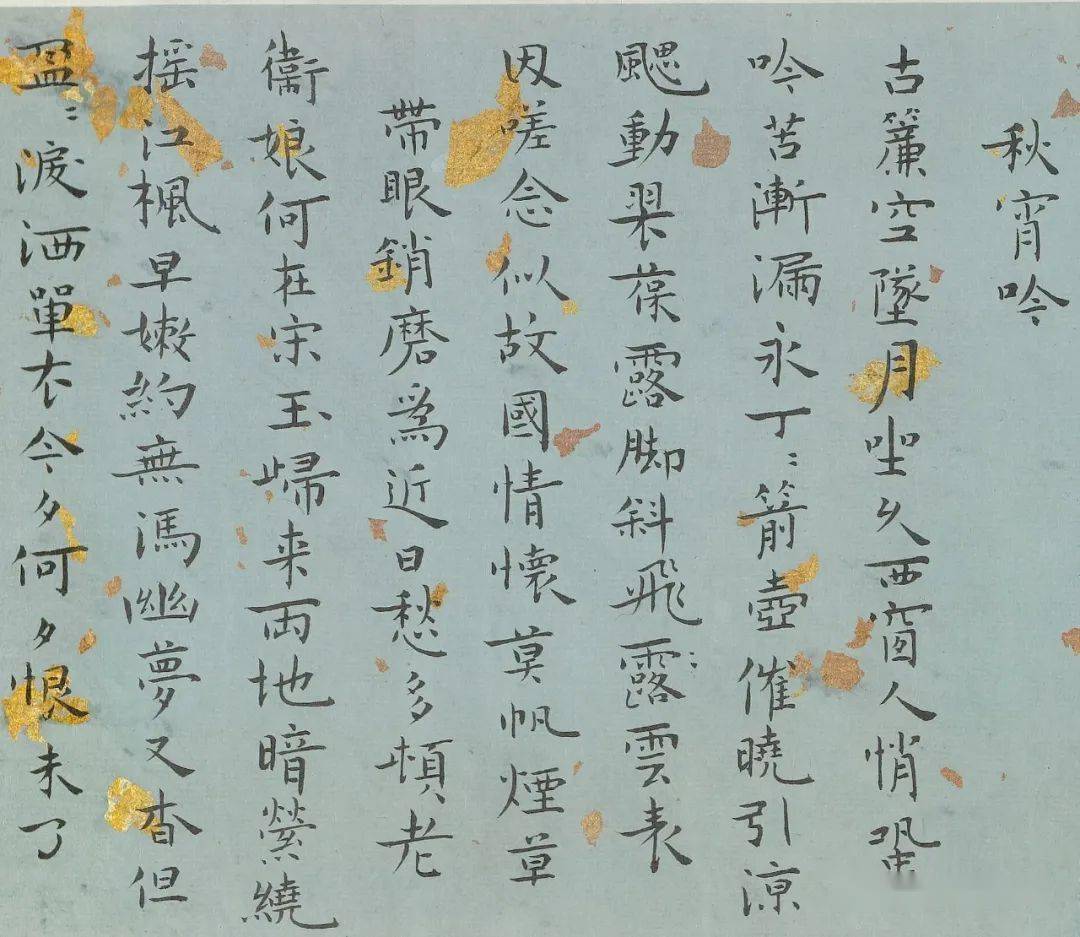 秋宵吟
古簾空墜月坐久西窗人悄蛩
吟苦漸漏永丁〻箭壺催曉引涼
颸動翠葆露脚斜飛露雲表
因嗟念似故國情懷莫帆煙草
帶眼銷磨爲近日愁多頓老
衞娘何在宋玉歸来両地暗縈繞
摇江楓早嫩約無馮幽夢又杳但
盈〻淚洒單衣今夕何夕恨未了